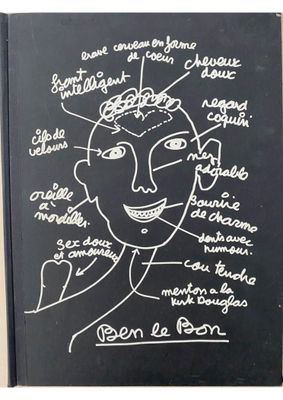 crane cerveau en forme
de coeur
front
intelligent
cheveux
doux
regard
coquin
cils de
velours
nez
adorable
oreille
à
mordiller
sourire
de charme
dents avec
humour.
sex doux
et amoureux
cou tendre
menton a la
Kirk Douglas
Ben le Bon